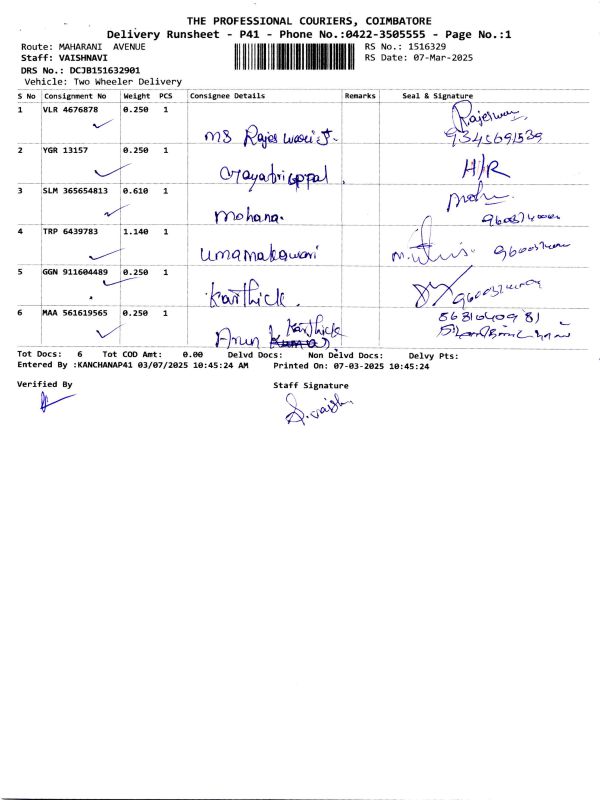 THE PROFESSIONAL COURIERS, COIMBATORE
Delivery Runsheet - P41 - Phone No.:0422-3505555 - Page No.:1
Route: MAHARANI AVENUE RS No.: 1516329
Staff: VAISHNAVI RS Date: 07-Mar-2025
DRS No.: DCJB151632901
Vehicle: Two Wheeler Delivery
S No Consignment No Weight PCS Consignee Details Remarks Seal & Signature
1 VLR 4676878 0.250 1 Rajeswari
MS Rajeswari J.
2 YGR 13157 0.250 1 H/R
3 SLM 365654813 0.610 1
mohana.
4 TRP 6439783 1.140 1
5 GGN 911604489 0.250 1
Karthick.
6 MAA 561619565 0.250 1
Arun Karthick
Tot Docs: 6 Tot COD Amt: 0.00 Delvd Docs: Non Delvd Docs: Delvy Pts:
Entered By :KANCHANAP41 03/07/2025 10:45:24 AM Printed On: 07-03-2025 10:45:24
Verified By Staff Signature